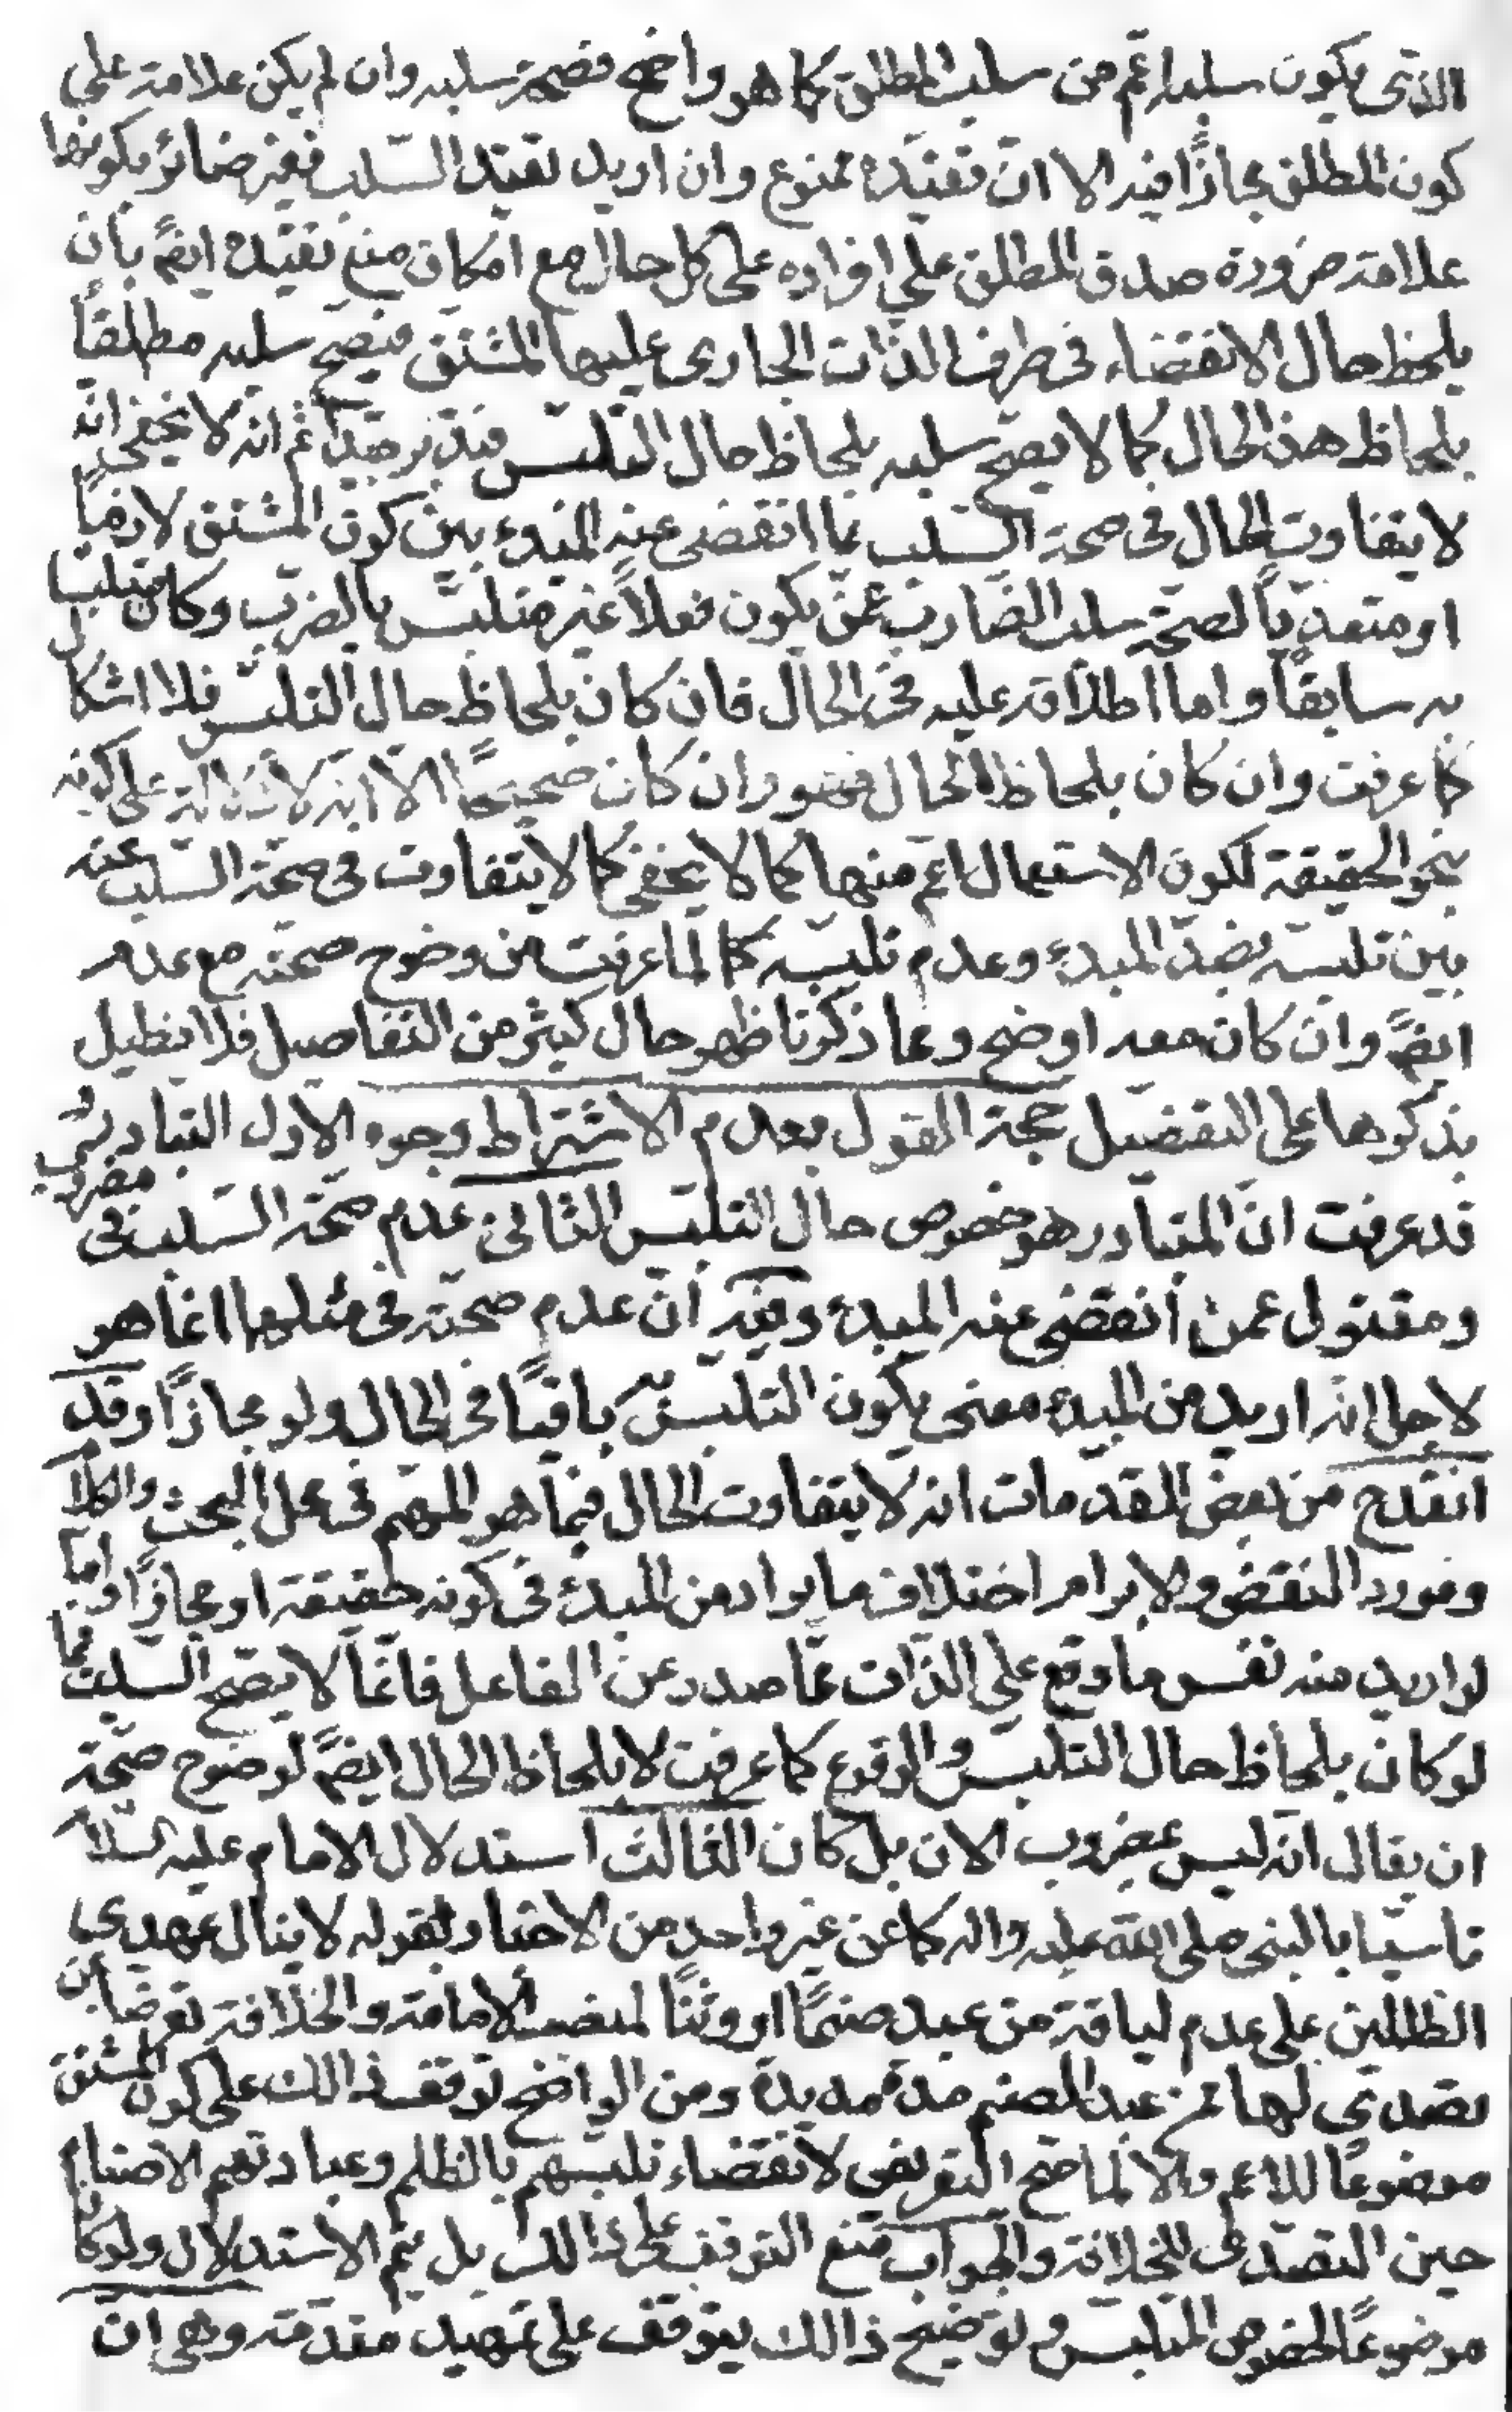 الذى يكون سلبه اعم من سلب المطلق كما هو واضح فصحة سلبه وان لم يكن علامة على
كون المطلق مجازًا فيه الا ان تقييده ممنوع وان اريد تقييد السلب فغير ضائر بكونها
علامة ضرورة صدق المطلق على افراده على كل حال مع امكان منع تقييده ايضً بان
يلحظ حال الانقضاء فى طرف الذات الجارى عليها المشتق فيصح سلبه مطلقاً
بلحاظ هذا الحال كما لا يصح سلبه بلحاظ حال التلبس فتدبر جيداً ثم انه لا يخفى انه
لا يتفاوت الحال فى صحة السلب عما انقضى عنه المبدء بين كون المشتق لازماً
او متعدياً لصحة سلب الضارب عمن يكون فعلاً غير متلبس بالضرب وكان متلبسا
به سابقاً واما اطلاقه عليه فى الحال فان كان بلحاظ حال التلبس فلا اشكال
كما عرفت وان كان بلحاظ الحال فهو وان كان صحيحًا الا انه لا دلالة على كونه
بنحو الحقيقة لكون الاستعمال اعم منها كما لا يخفى كما لا يتفاوت فى صحة السلب عنه
بين تلبسه بضد المبدء وعدم تلبسه كما لما عرفت من وضوح صحته مع عدمه
ايضً وان كان معه اوضح ومما ذكرنا ظهر حال كثير من التفاصيل فلا نطيل
بذكرها على التفصيل حجة القول بعدم الاشتراط وجوه الاول التبادر وفيه
قد عرفت ان المتبادر هو خصوص حال التلبس الثانى عدم صحة السلب فى مضروب
ومقتول عمن انقضى عنه المبدء وفيه ان عدم صحته فى مثلهما انما هو
لاجل انه اريد من المبدء معنى يكون التلبس به باقيًا فى الحال ولو مجازًا وقد
انقدح من بعض المقدمات انه لا يتفاوت الحال فيما هو المهم فى محل البحث والكلام
ومورد النقض والابرام اختلاف ما يراد من المبدء فى كونه حقيقة او مجازًا واما
لو اريد منه نفس ما وقع على الذات مما صدر عن الفاعل فانما لا يصح السلب فيما
لو كان بلحاظ حال التلبس والوقوع كما عرفت لا بلحاظ الحال ايضً لوضوح صحة
ان يقال انه ليس بمضروب الان بل كان الثالث استدلال الامام عليه السلام
تاسيا بالنبى صلى الله عليه واله كما عن غير واحد من الاخبار بقوله لا ينال عهدى
الظالمين على عدم لياقة من عبد صنمًا او وثنًا لمنصب الامامة والخلافة تعرضا بمن
تصدى لها ممن عبد الصنم مدة مديدة ومن الواضح توقف ذالك على كون المشتق
موضوعًا للاعم والا لما صح التعريض لانقضاء تلبسهم بالظلم وعبادتهم الاصنام
حين التصدى للخلافة والجواب منع التوقف على ذالك بل يتم الاستدلال ولو كان
موضوعًا لخصوص المتلبس وتوضيح ذالك يتوقف على تمهيد مقدمة وهى ان